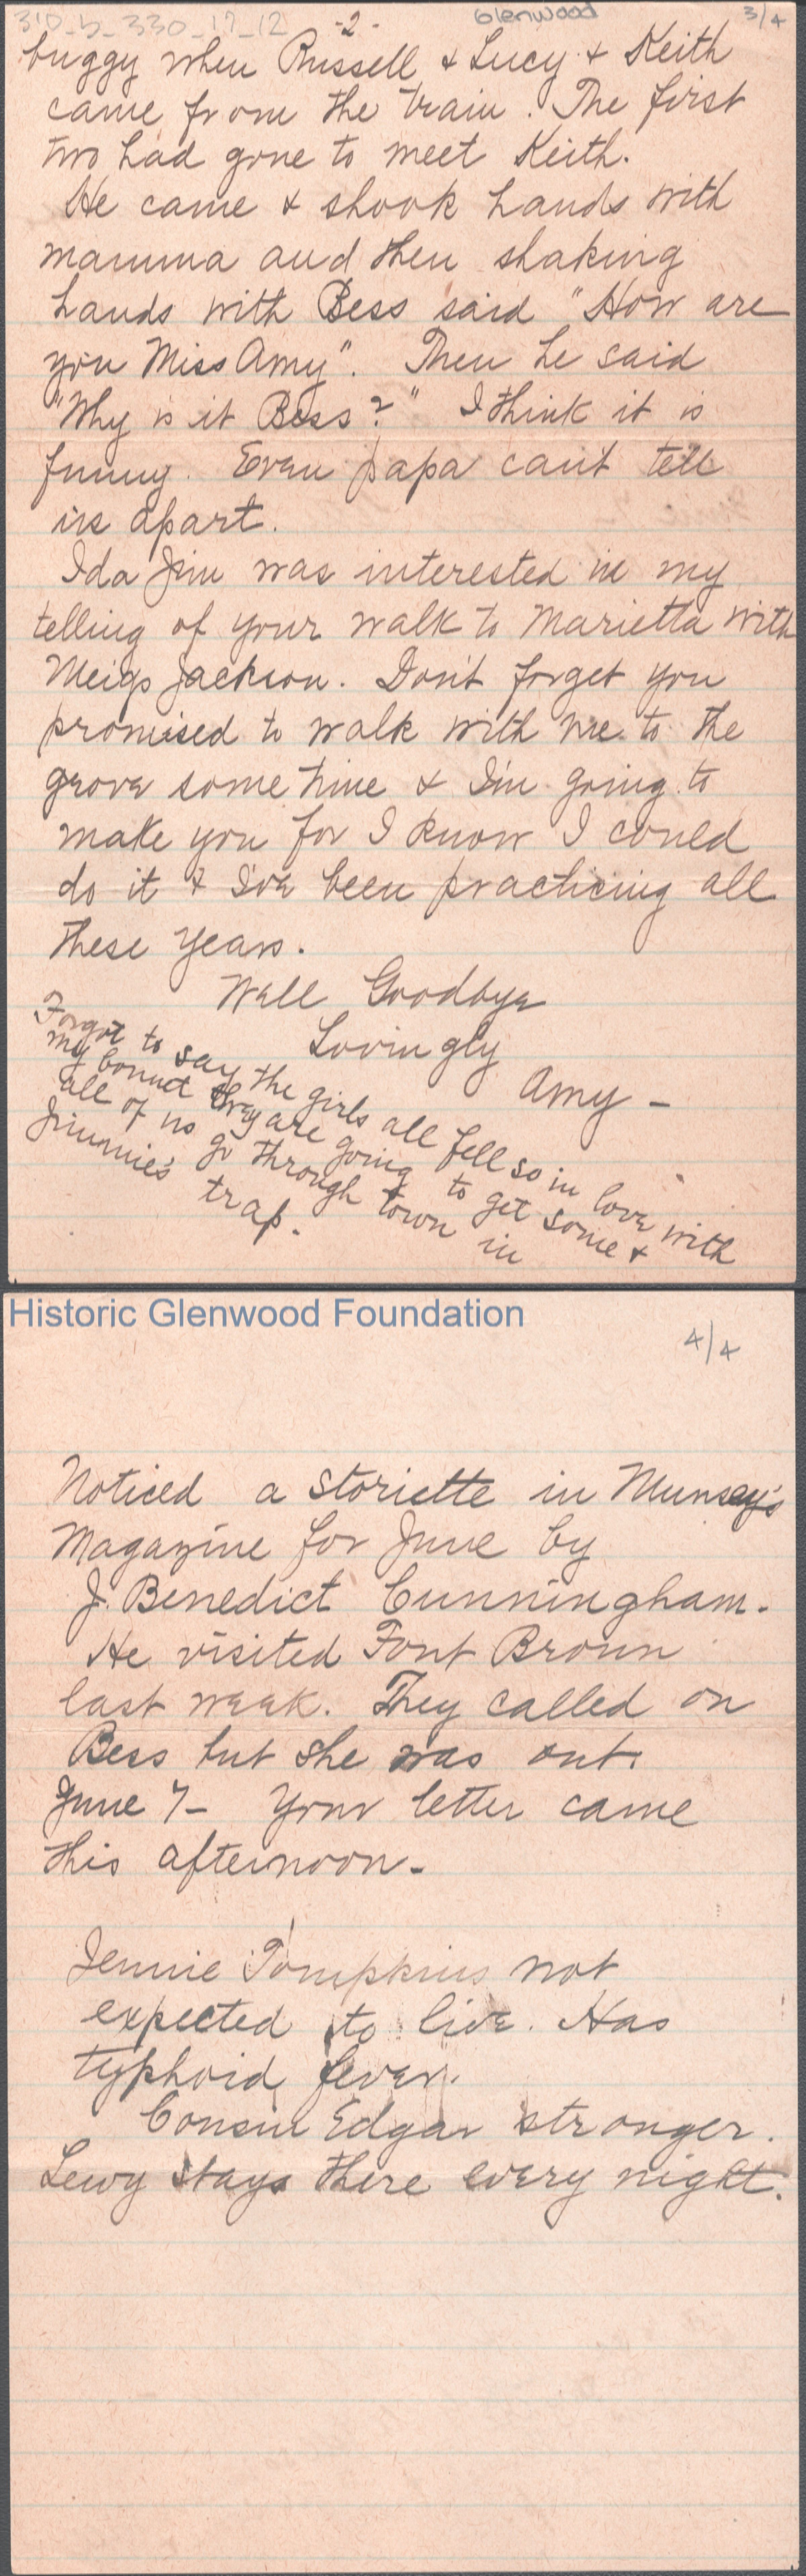 310_b_330_17_12 -2- Glenwood 3/4
buggy when Russell & Lucy & Keith
came from the train. The first
two had gone to meet Keith.
He came & shook hands with
mamma and then shaking
hands with Bess said "How are
you Miss Amy". Then he said
"Why is it Bess?" I think it is
funny. Even papa can't tell
us apart.
Ida Jim was interested in my
telling of your walk to Marietta with
Meigs Jackson. Don't forget you
promised to walk with me to the
grove some time & I'm going to
make you for I know I could
do it & I've been practicing all
these years.
Well Goodbye
Lovingly
Amy -
Forgot to say the girls all fell so in love with
my bonnet they are going to get some &
all of us go through town in
Jimmie's trap.
Historic Glenwood Foundation
4/4
Noticed a storiette in Munsey's
Magazine for June by
J. Benedict Cunningham.
He visited Font Brown
last week. They called on
Bess but she was out.
June 7- Your letter came
this afternoon-
Jennie Tompkins not
expected to live. Has
typhoid fever.
Cousin Edgar stronger.
Lewy stays there every night.